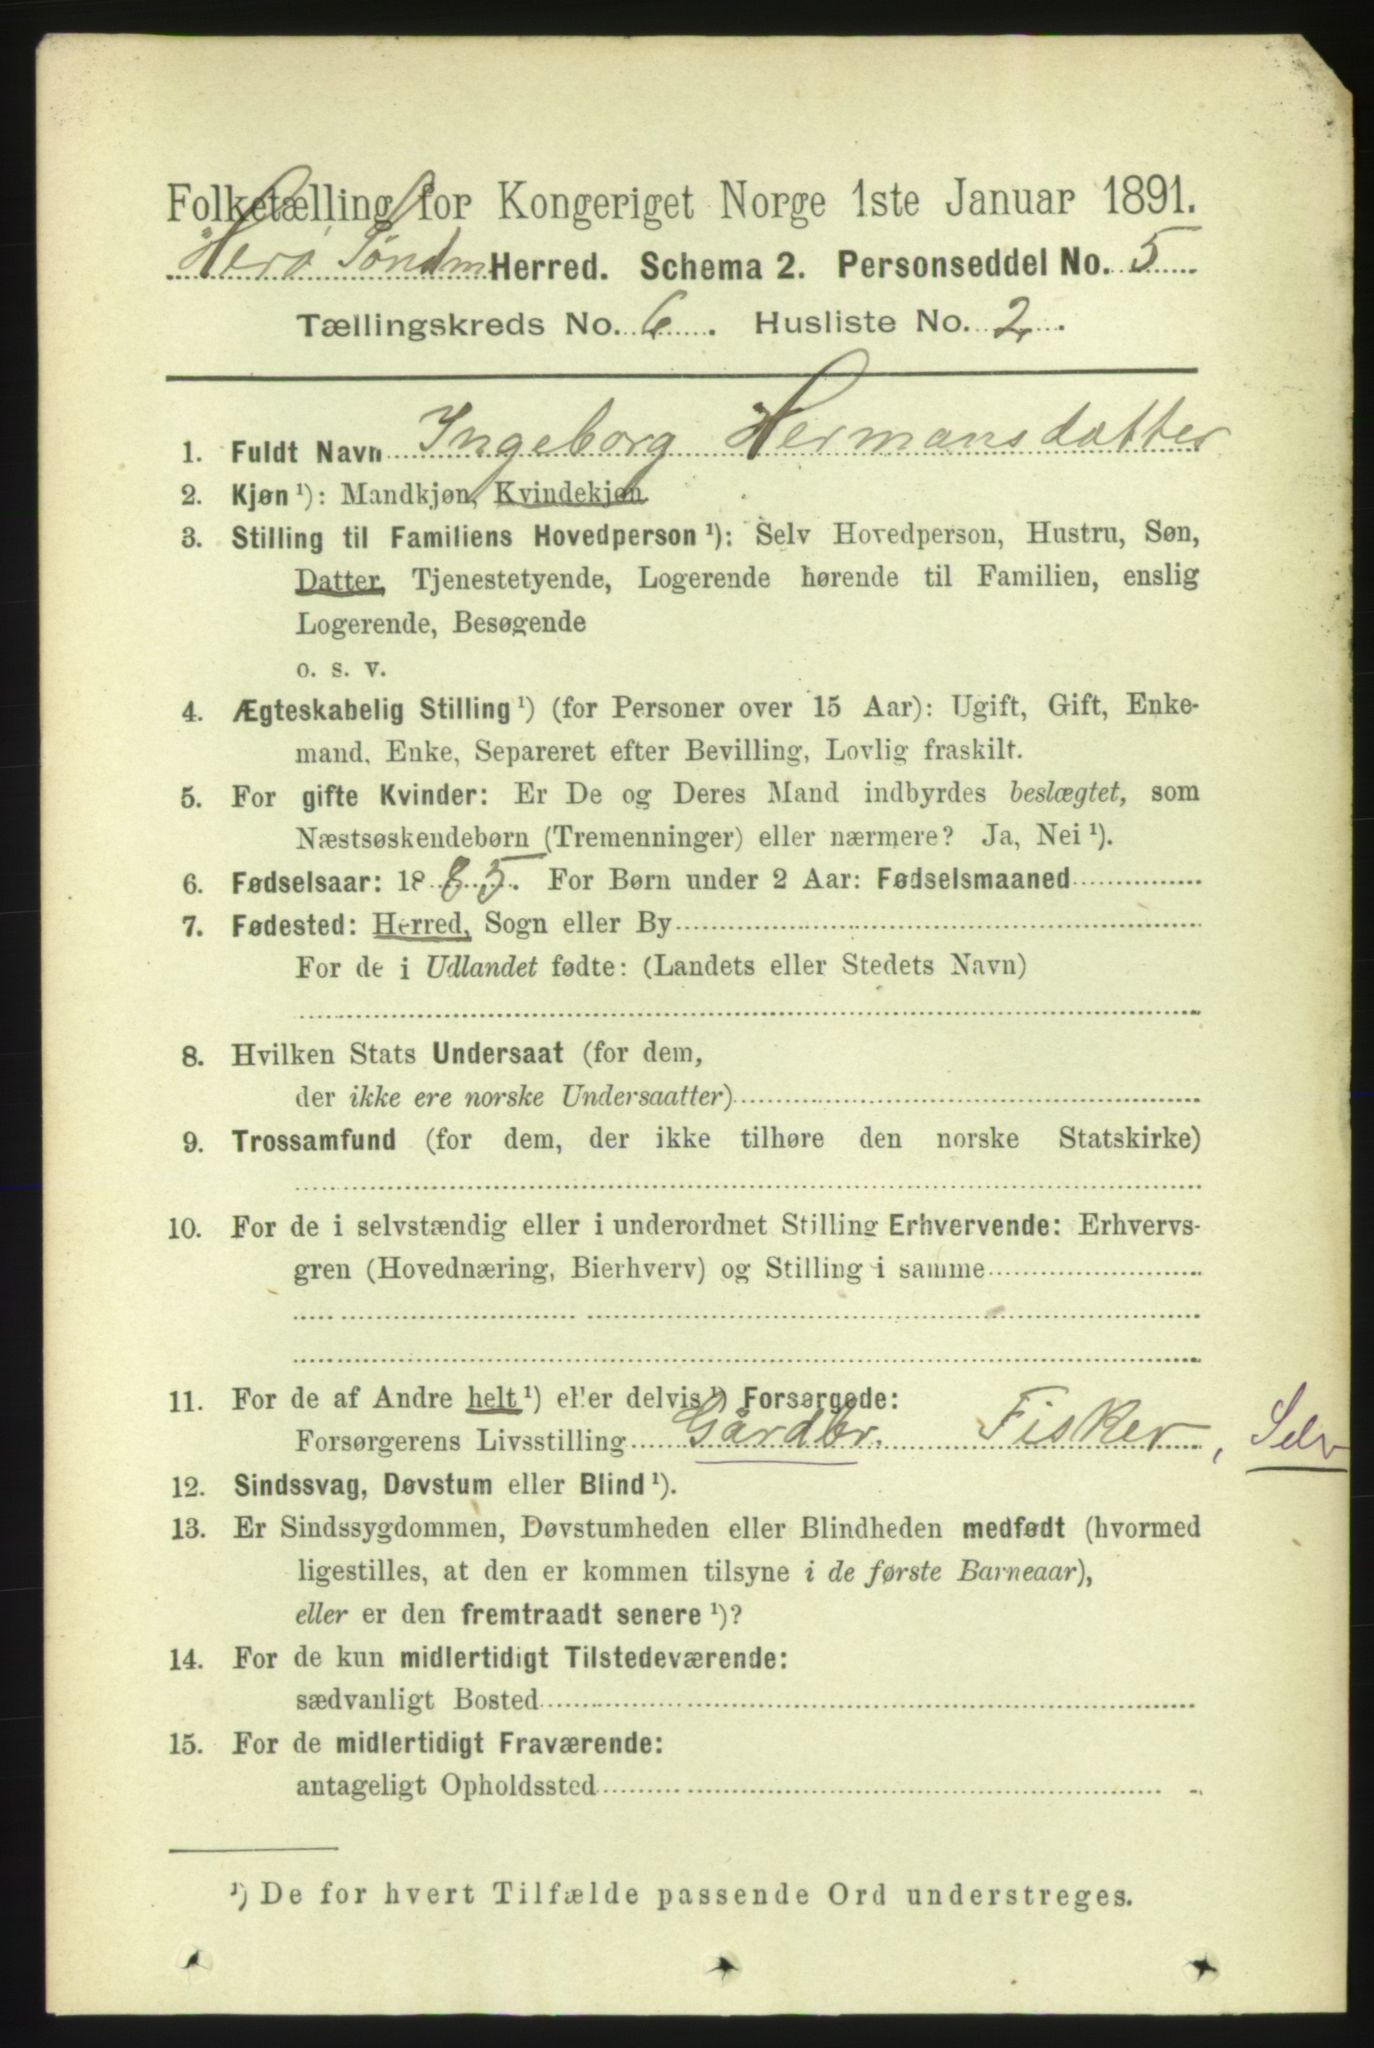 Folketælling for Kongeriget Norge 1ste Januar 1891.
Herø Søndm Herred. Schema 2. Personseddel No. 5
Tællingskreds No. 6. Husliste No. 2.
1. Fuldt Navn Ingeborg Hermansdatter
2. Kjøn ¹): Mandkjøn, Kvindekjøn
3. Stilling til Familiens Hovedperson ¹): Selv Hovedperson, Hustru, Søn,
Datter, Tjenestetyende, Logerende hørende til Familien, enslig
Logerende, Besøgende
o. s. v.
4. Ægteskabelig Stilling ¹) (for Personer over 15 Aar): Ugift, Gift, Enke-
mand, Enke, Separeret efter Bevilling, Lovlig fraskilt.
5. For gifte Kvinder: Er De og Deres Mand indbyrdes beslægtet, som
Næstsøskendebørn (Tremenninger) eller nærmere? Ja, Nei ¹).
6. Fødselsaar: 1885. For Børn under 2 Aar: Fødselsmaaned
7. Fødested: Herred, Sogn eller By
For de i Udlandet fødte: (Landets eller Stedets Navn)
8. Hvilken Stats Undersaat (for dem,
der ikke ere norske Undersaatter)
9. Trossamfund (for dem, der ikke tilhøre den norske Statskirke)
10. For de i selvstændig eller i underordnet Stilling Erhvervende: Erhvervs-
gren (Hovednæring, Bierhverv) og Stilling i samme
11. For de af Andre helt ¹) eller delvis ¹) Forsørgede:
Forsørgerens Livsstilling Gårdbr. Fisker, Selv
12. Sindssvag, Døvstum eller Blind ¹).
13. Er Sindssygdommen, Døvstumheden eller Blindheden medfødt (hvormed
ligestilles, at den er kommen tilsyne i de første Barneaar),
eller er den fremtraadt senere ¹)?
14. For de kun midlertidigt Tilstedeværende:
sædvanligt Bosted
15. For de midlertidigt Fraværende:
antageligt Opholdssted
¹) De for hvert Tilfælde passende Ord understreges.